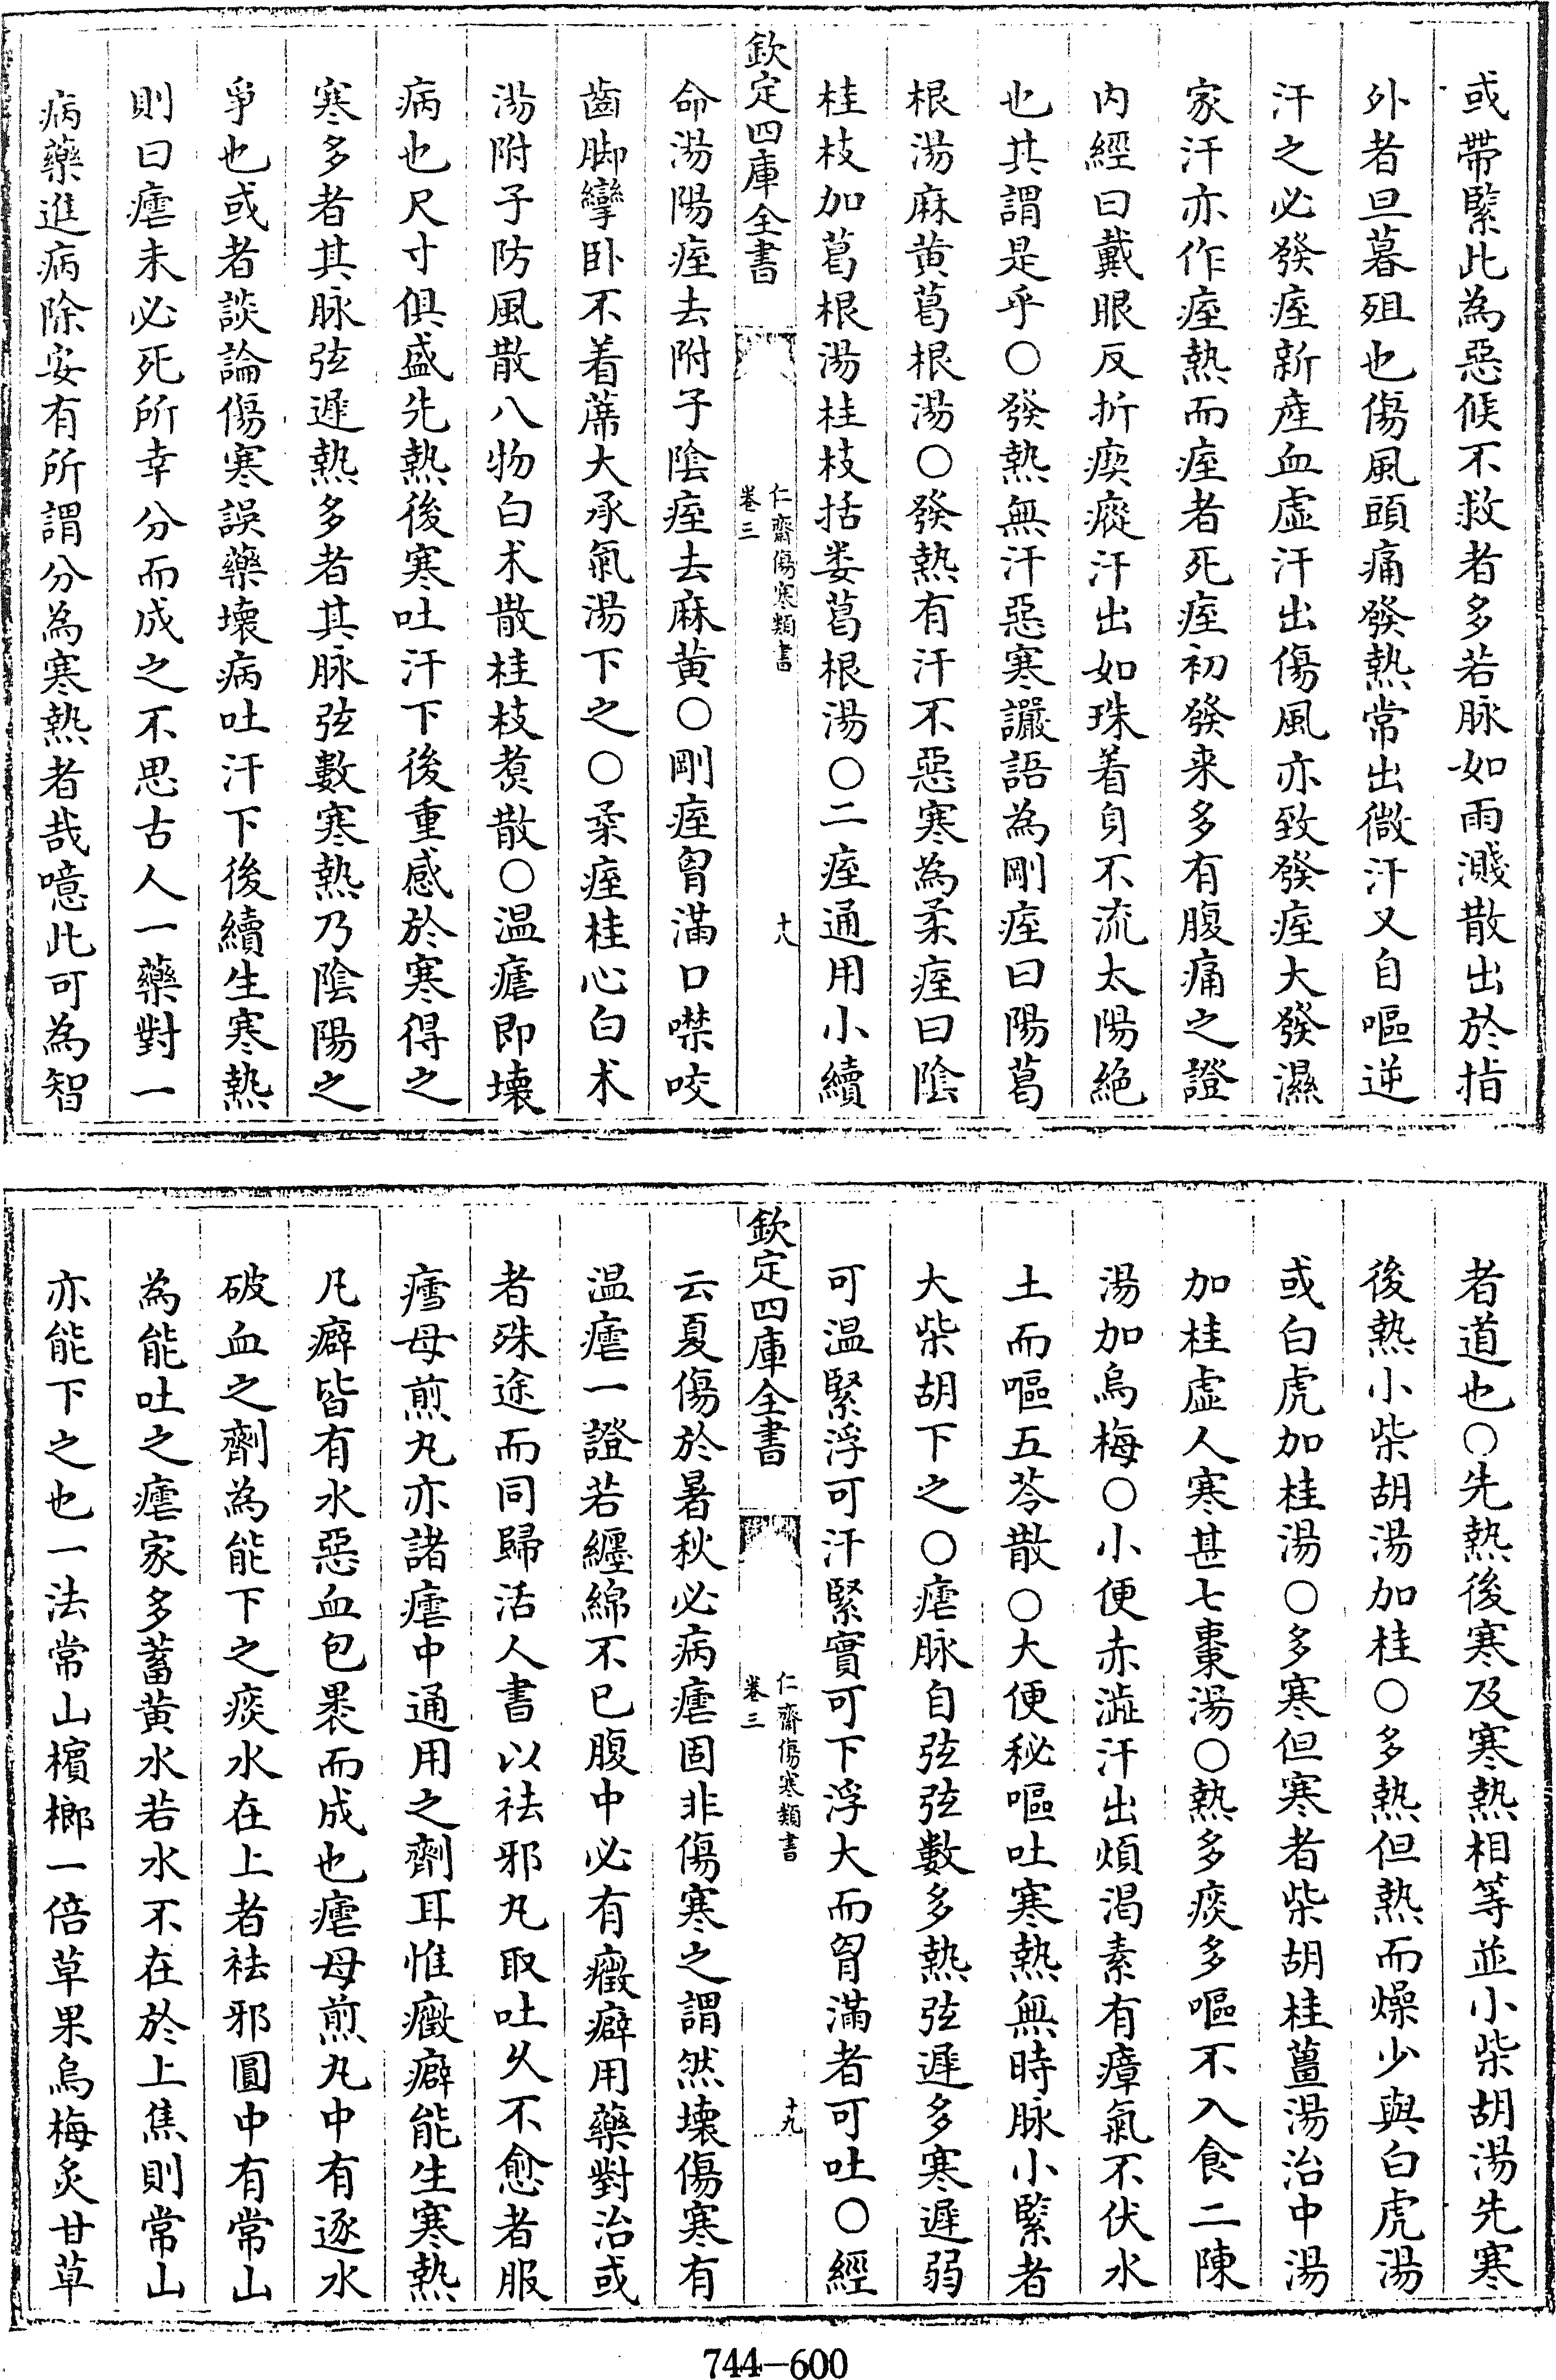 或帶緊此為惡候不救者多若脉如雨濺散出於指
外者旦暮殂也傷風頭痛發熱常出微汗又自嘔逆
汗之必發痓新産血虛汗出傷風亦致發痓大發濕
家汗亦作痓熱而痓者死痓初發来多有腹痛之證
内經曰戴眼反折瘈瘲汗出如珠着身不流太陽絶
也其謂是乎○發熱無汗惡寒讝語為剛痓曰陽葛
根湯麻黄葛根湯○發熱有汗不惡寒為柔痓曰隂
桂枝加葛根湯桂枝括蔞葛根湯○二痓通用小續
欽定四庫全書
仁齋傷寒類書
卷三
十八
命湯陽痓去附子隂痓去麻黄○剛痓胷滿口噤咬
齒脚攣卧不着蓆大承氣湯下之○柔痓桂心白术
湯附子防風散八物白术散桂枝煑散○温瘧即壊
病也尺寸俱盛先熱後寒吐汗下後重感於寒得之
寒多者其脉弦遲熱多者其脉弦數寒熱乃隂陽之
爭也或者談論傷寒誤藥壊病吐汗下後續生寒熱
則曰瘧未必死所幸分而成之不思古人一藥對一
病藥進病除安有所謂分為寒熱者哉噫此可為智
者道也○先熱後寒及寒熱相等並小柴胡湯先寒
後熱小柴胡湯加桂○多熱但熱而燥少與白虎湯
或白虎加桂湯○多寒但寒者柴胡桂薑湯治中湯
加桂虛人寒甚七棗湯○熱多痰多嘔不入食二陳
湯加烏梅○小便赤澁汗出煩渴素有瘴氣不伏水
土而嘔五苓散○大便秘嘔吐寒熱無時脉小緊者
大柴胡下之○瘧脉自弦弦數多熱弦遲多寒遲弱
可温緊浮可汗緊實可下浮大而胷滿者可吐○經
欽定四庫全書
仁齋傷寒類書
卷三
十九
云夏傷於暑秋必病瘧固非傷寒之謂然壊傷寒有
温瘧一證若纒綿不已腹中必有癥癖用藥對治或
者殊途而同歸活人書以袪邪丸取吐乆不愈者服
瘧母煎丸亦諸瘧中通用之劑耳惟癥癖能生寒熱
凡癖皆有水惡血包褁而成也瘧母煎丸中有逐水
破血之劑為能下之痰水在上者袪邪圓中有常山
為能吐之瘧家多蓄黄水若水不在於上焦則常山
亦能下之也一法常山檳榔一倍草果烏梅炙甘草
744-600